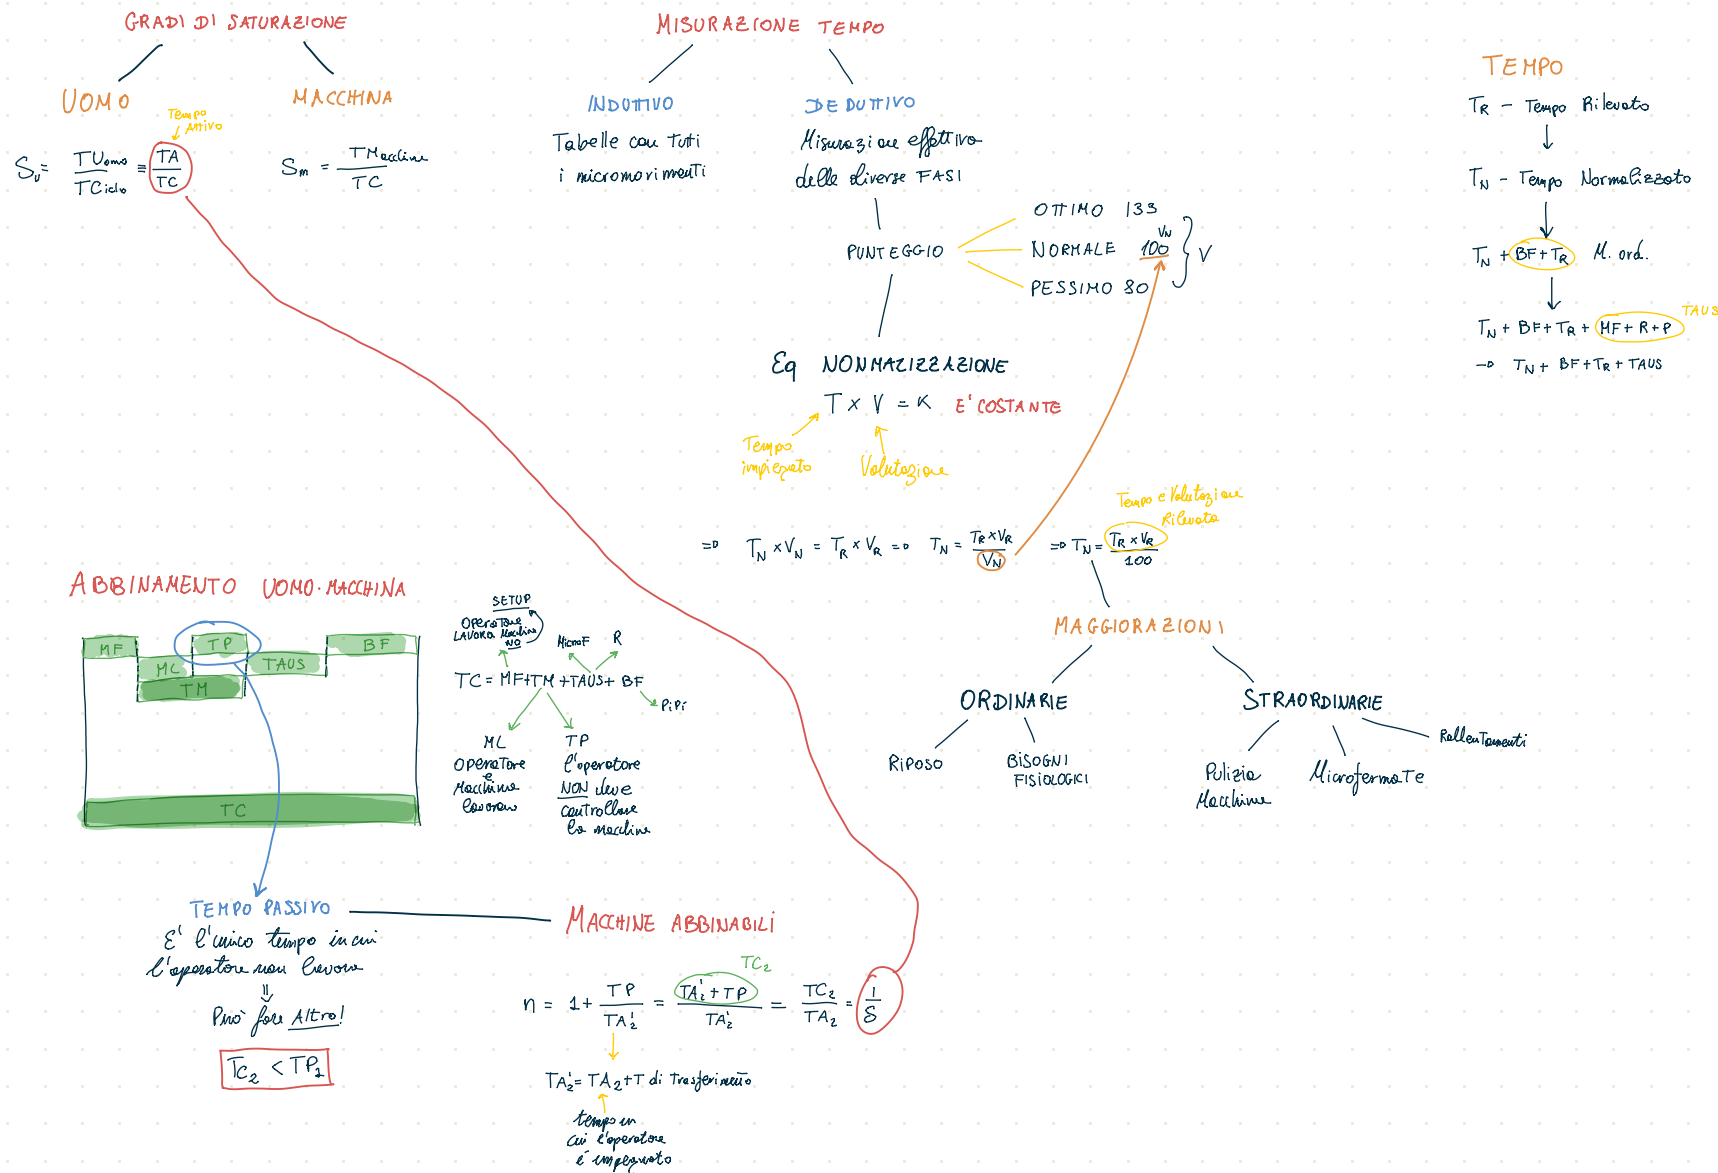 GRADI DI SATURAZIONE
UOMO
MACCHINA
Tempo
Attivo
Su = TUomo / TCiclo = TA / TC
Sm = TMacchina / TC
MISURAZIONE TEMPO
INDUTTIVO
Tabelle con tutti
i micromovimenti
DEDUTTIVO
Misurazione effettiva
delle diverse FASI
PUNTEGGIO
OTTIMO 133
NORMALE 100 VN
PESSIMO 80
V
Eq NONMALIZZAZIONE
T × V = K E' COSTANTE
Tempo
impiegato
Valutazione
=> TN × VN = TR × VR => TN = TR × VR / VN => TN = TR × VR / 100
Tempo e Valutazione
Rilevata
MAGGIORAZIONI
ORDINARIE
STRAORDINARIE
Riposo
BISOGNI
FISIOLOGICI
Pulizia
Macchina
Microfermate
Rallentamenti
TEMPO
TR - Tempo Rilevato
TN - Tempo Normalizzato
TN + BF + TR M. ord.
TN + BF + TR + MF + R + P TAUS
→ TN + BF + TR + TAUS
ABBINAMENTO UOMO-MACCHINA
MF
ML
TP
TM
TAUS
BF
TC
SETUP
OPERATORE
LAVORA Macchina
NO
MicroF
R
TC = MF + TM + TAUS + BF
PiPi
ML
OPERATORE
e
Macchina
lavorano
TP
l'operatore
NON deve
controllare
la macchina
TEMPO PASSIVO
E' l'unico tempo in cui
l'operatore non lavora
Può fare Altro!
TC2 < TP1
MACCHINE ABBINABILI
TC2
n = 1 + TP / TA2' = TA2' + TP / TA2' = TC2 / TA2 = 1 / S
TA2' = TA2 + T di Trasferimento
tempo in
cui l'operatore
è impegnato